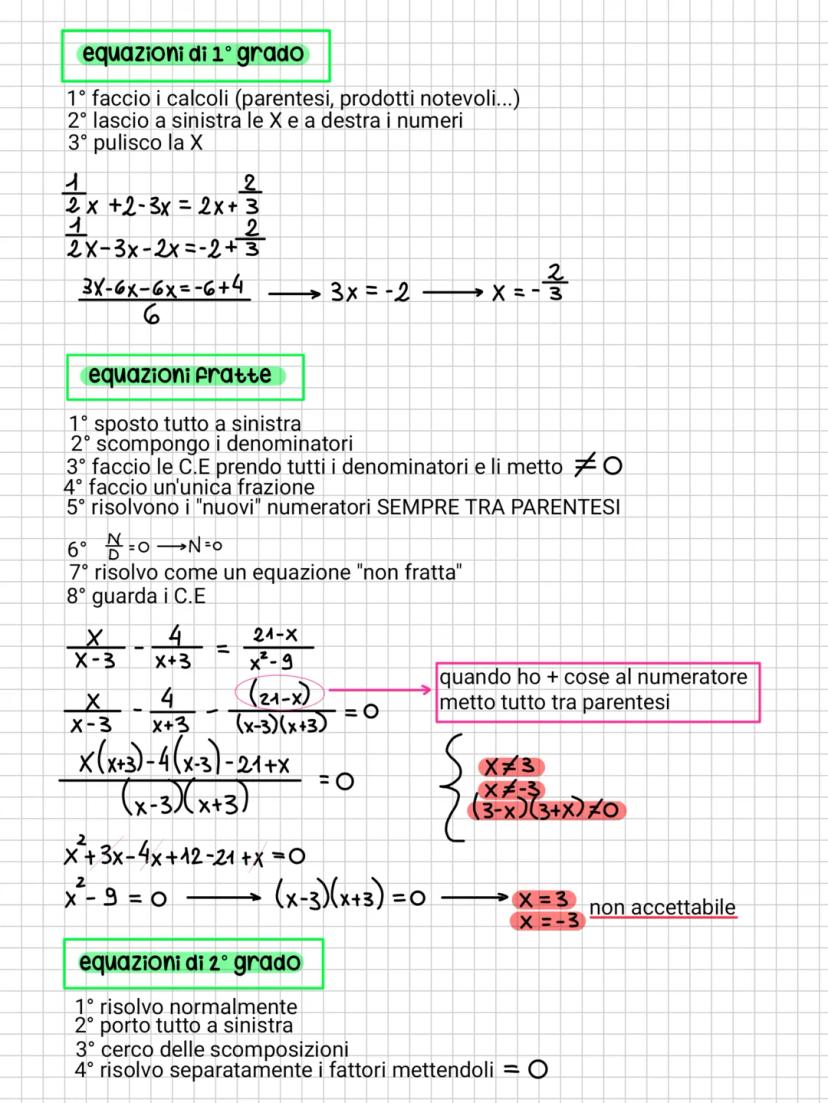 equazioni di 1° grado
1° faccio i calcoli (parentesi, prodotti notevoli...)
2° lascio a sinistra le X e a destra i numeri
3° pulisco la X
1/2 x + 2 - 3x = 2x + 2/3
1/2 x - 3x - 2x = -2 + 2/3
3x-6x-6x=-6+4 / 6 → 3x = -2 → x = -2/3
equazioni fratte
1° sposto tutto a sinistra
2° scompongo i denominatori
3° faccio le C.E prendo tutti i denominatori e li metto ≠ 0
4° faccio un'unica frazione
5° risolvono i "nuovi" numeratori SEMPRE TRA PARENTESI
6° N/D = 0 → N = 0
7° risolvo come un equazione "non fratta"
8° guarda i C.E
x/(x-3) - 4/(x+3) = (21-x)/(x²-9)
x/(x-3) - 4/(x+3) - (21-x)/((x-3)(x+3)) = 0
quando ho + cose al numeratore
metto tutto tra parentesi
x(x+3)-4(x-3)-21+x / (x-3)(x+3) = 0
{ x≠3
x≠-3
(3-x)(3+x)≠0
x²+3x-4x+12-21+x=0
x²-9 = 0 → (x-3)(x+3) = 0 → x = 3
x = -3
non accettabile
equazioni di 2° grado
1° risolvo normalmente
2° porto tutto a sinistra
3° cerco delle scomposizioni
4° risolvo separatamente i fattori mettendoli = 0